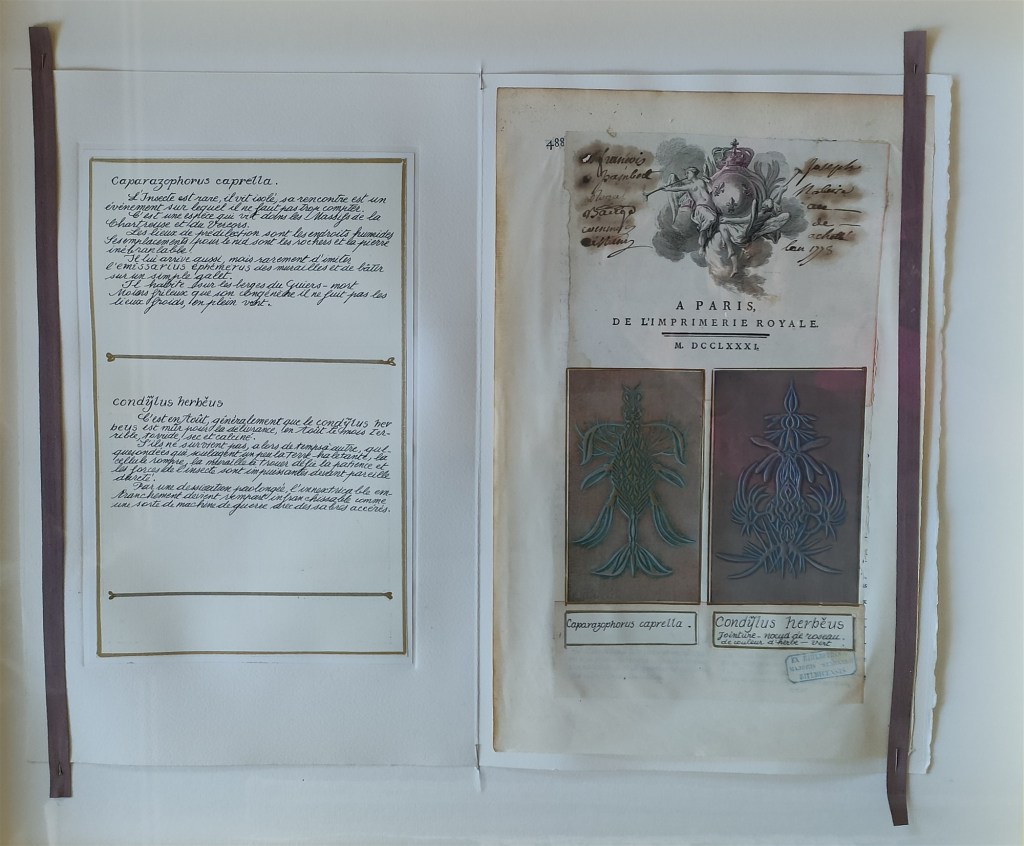 Caparazophorus caprella.
L'Insecte est rare, il vit isolé, sa rencontre est un
évènement sur lequel il ne faut pas trop compter.
C'est une espèce qui vit dans les Massifs de la
Chartreuse et du Vercors.
Les lieux de prédilection sont les endroits humides
Ses emplacements pour le nid sont les rochers et la pierre
inébranlable.
Il lui arrive aussi, mais rarement d'imiter
l'emissarius ephemerus des murailles et de bâtir
sur un simple galet.
Il habite sur les berges du Guiers-mort
Moins frileux que son congénère il ne fuit pas les
lieux froids, en plein vent.
condÿlus herběus
C'est en Août, généralement que le condÿlus her
beus est mûr pour la délivrance, en Août le mois ter-
rible, torride, sec et calciné.
S'ils ne survient pas, alors de temps à autre, quel
ques ondées que soulagent un peu la Terre haletante, la
cellule rompre, la muraille à trouer défie la patience et
les forces de l'insecte sont impuissantes devant pareille
dureté.
Par une dessication prolongée, l'inextricable en-
tranchement devient rempart infranchissable comme
une sorte de machine de guerre avec des sabres acérés.
488
francois
Joseph
A PARIS,
DE L'IMPRIMERIE ROYALE.
M. DCCLXXXI.
Caparazophorus caprella.
Condÿlus herběus
Jointure - noeud de roseau.
de couleur d'herbe - vert.